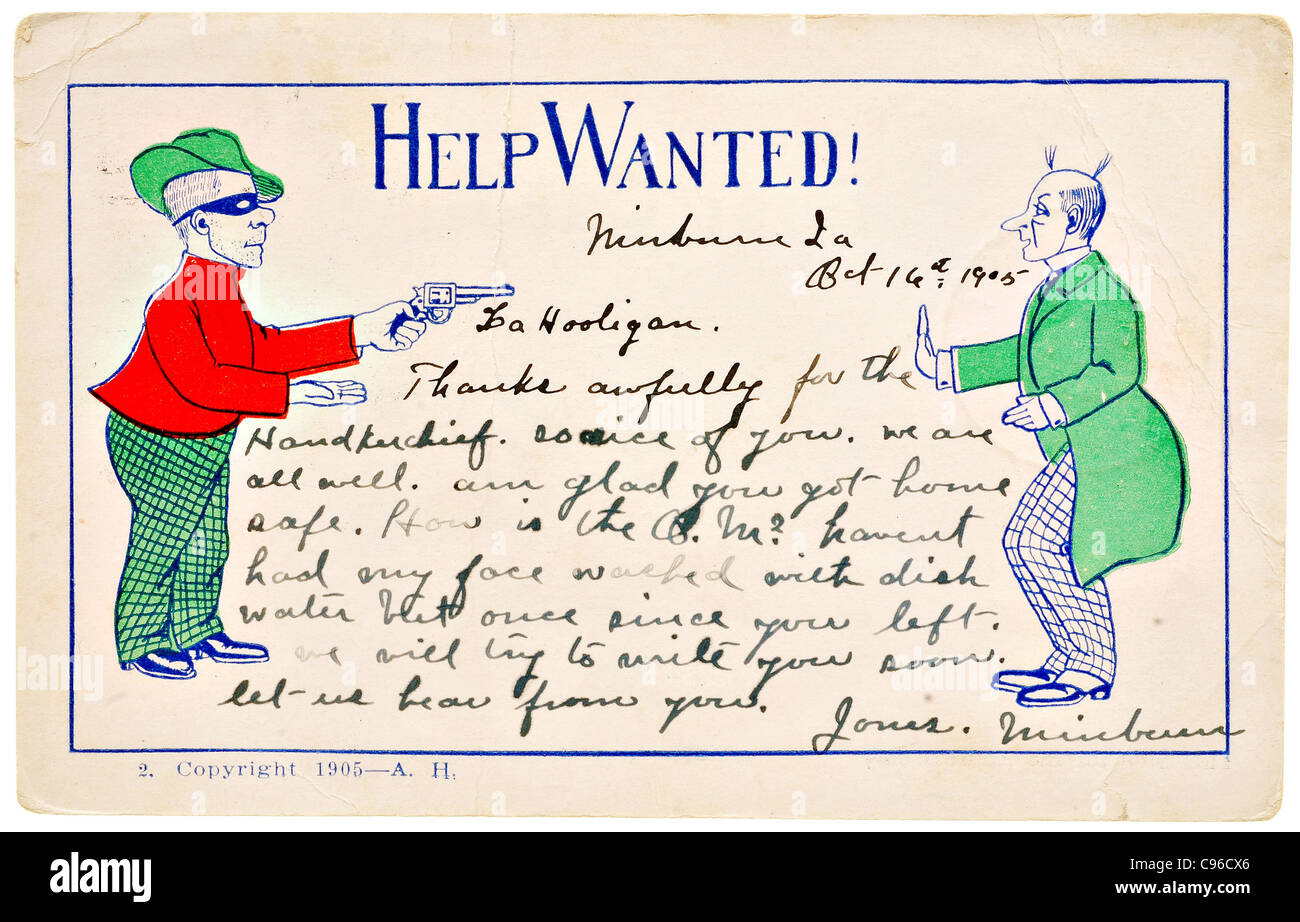 HELP WANTED!
Minburn Ia
Oct 16th 1905
La Hooligan.
Thanks awfully for the
Handkerchief. so nice of you. we are
all well. am glad you got home
safe. How is the C. M? havent
had my face washed with dish
water but once since you left.
we will try to write you soon.
let us hear from you.
Jones. Minburn
2. Copyright 1905—A. H.
alamy
alamy
alamy
Image ID: C96CX6
www.alamy.com